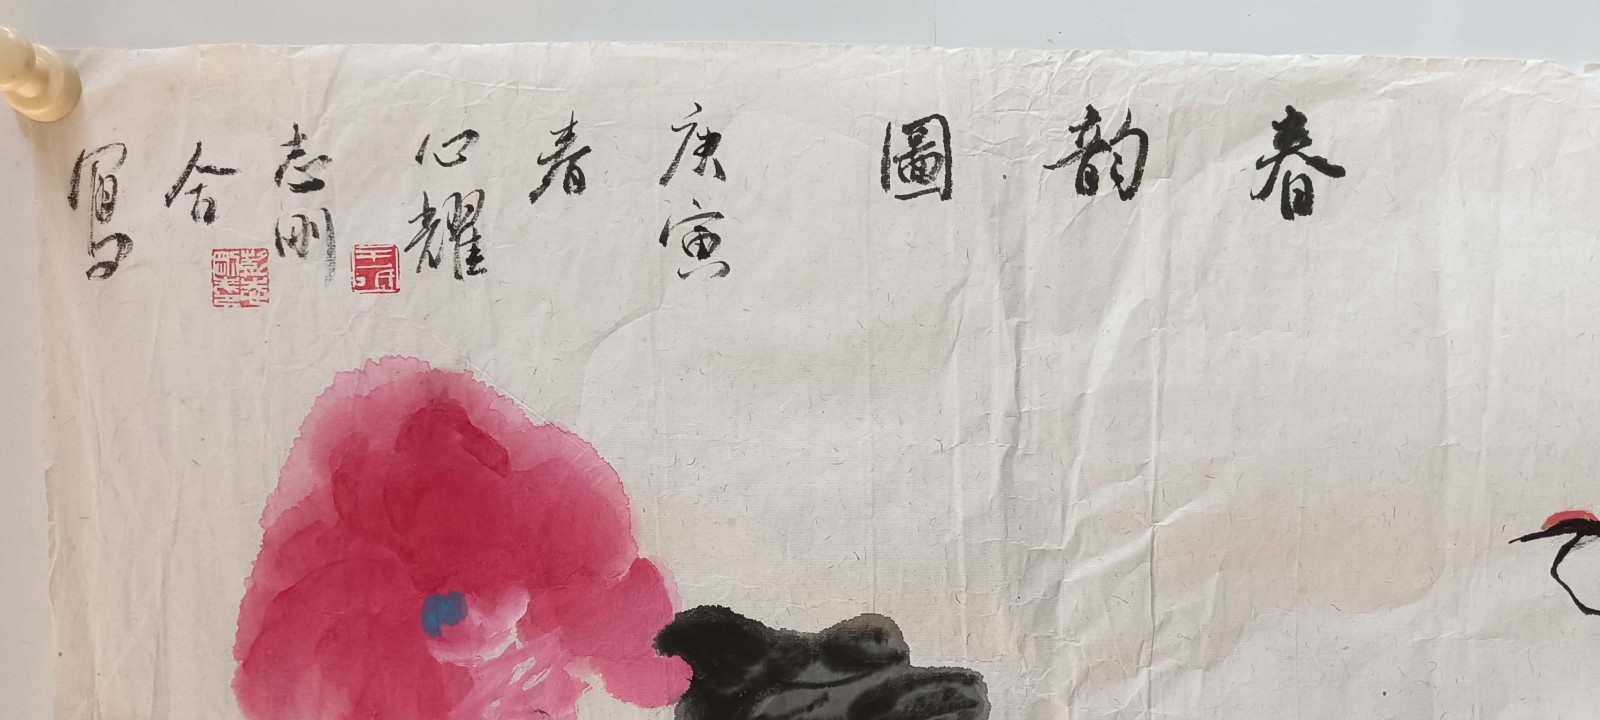 春韵圖
庚寅
春
心耀
志刚
合
寫